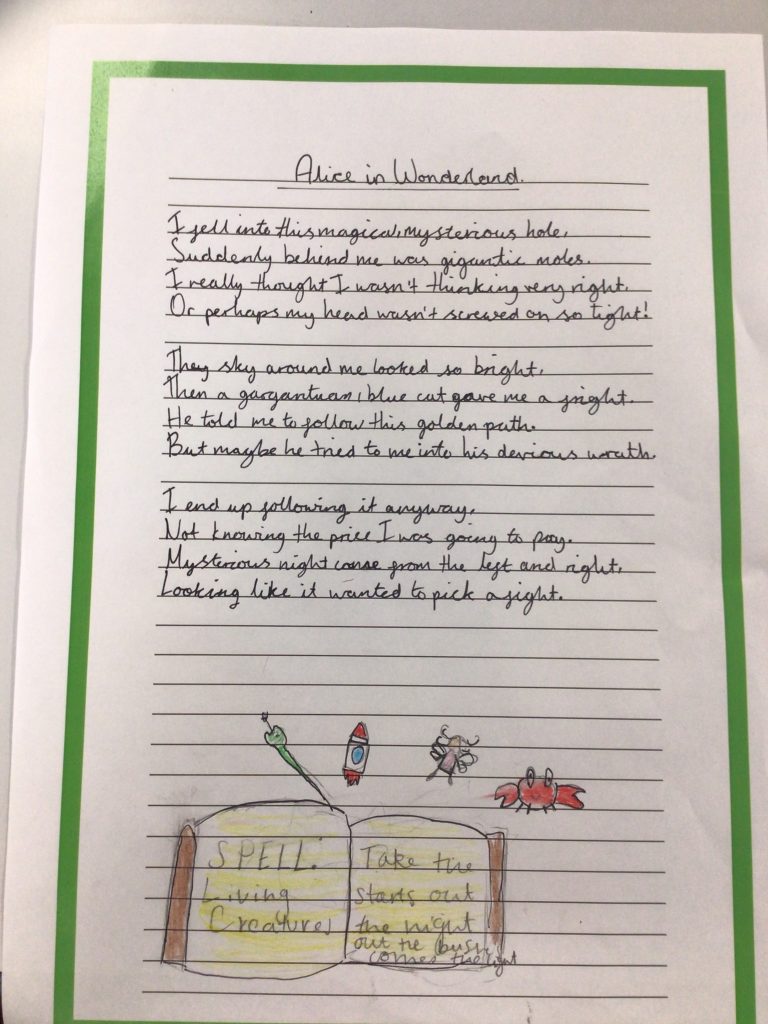 Alice in Wonderland.
I fell into this magical, mysterious hole,
Suddenly behind me was gigantic moles.
I really thought I wasn't thinking very right,
Or perhaps my head wasn't screwed on so tight!
They sky around me looked so bright,
Then a gargantuan, blue cat gave me a fright.
He told me to follow this golden path.
But maybe he tried to me into his devious wrath.
I end up following it anyway,
Not knowing the price I was going to pay.
Mysterious night came from the left and right,
Looking like it wanted to pick a fight.
SPELL:
Living
Creatures
Take the
starts out
the night
out the bush
comes the light